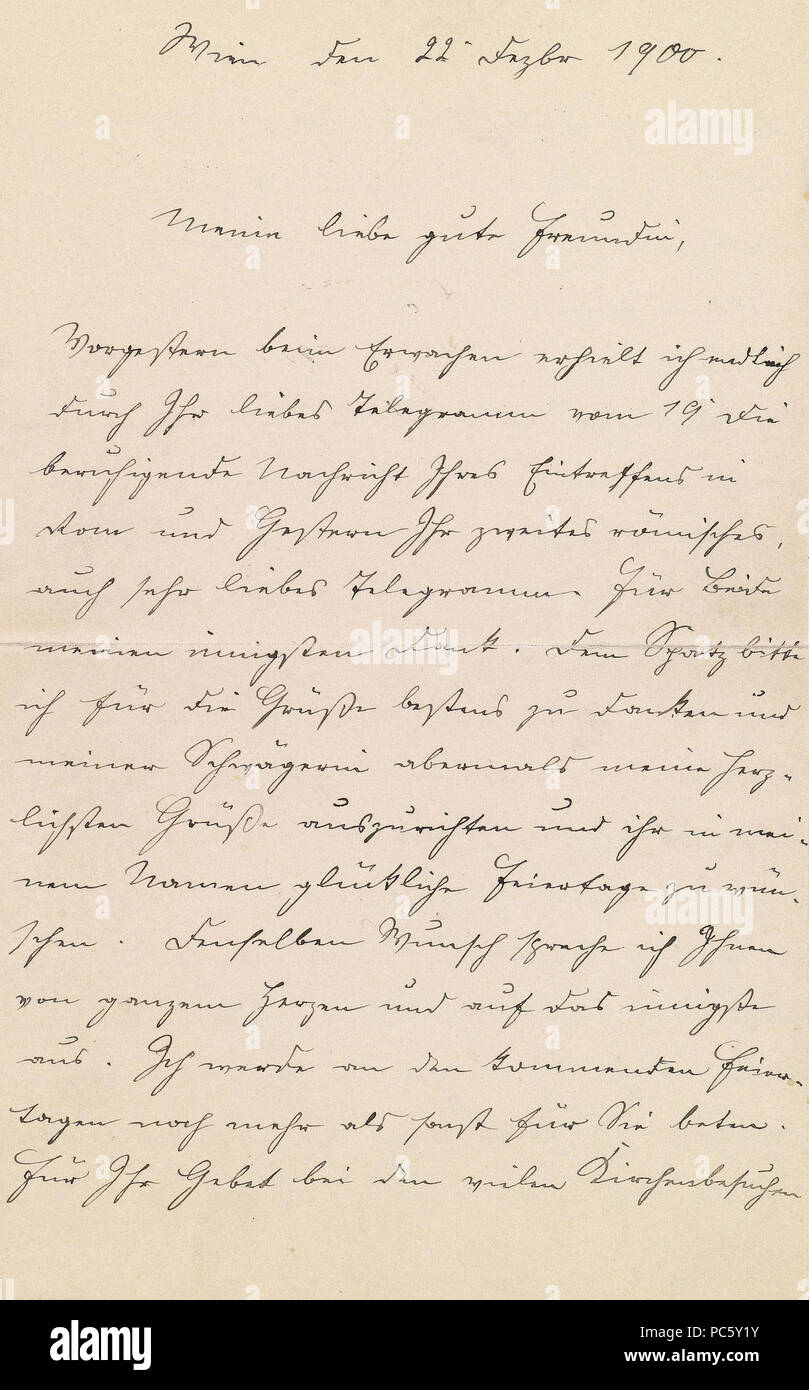 Wien den 22 Dezbr 1900.
Meine liebe gute Freundin,
Vorgestern beim Erwachen erhielt ich endlich
durch Ihr liebes Telegramm vom 19 die
beruhigende Nachricht Ihres Eintreffens in
Rom und Gestern Ihr zweites römisches,
auch sehr liebes Telegramm. Für Beide
meinen innigsten Dank. Dem Spatz bitte
ich für die Grüße bestens zu danken und
meiner Schwägerin abermals meine herz-
lichsten Grüße auszurichten und ihr in mei-
nem Namen glückliche Feiertage zu wün-
schen. Denselben Wunsch spreche ich Ihnen
von ganzem Herzen und auf das innigste
aus. Ich werde an den kommenden Feier-
tagen noch mehr als sonst für Sie beten.
Für Ihr Gebet bei den vielen Kirchenbesuchen
alamy
alamy
alamy
a alamy
Image ID: PC5Y1Y
www.alamy.com